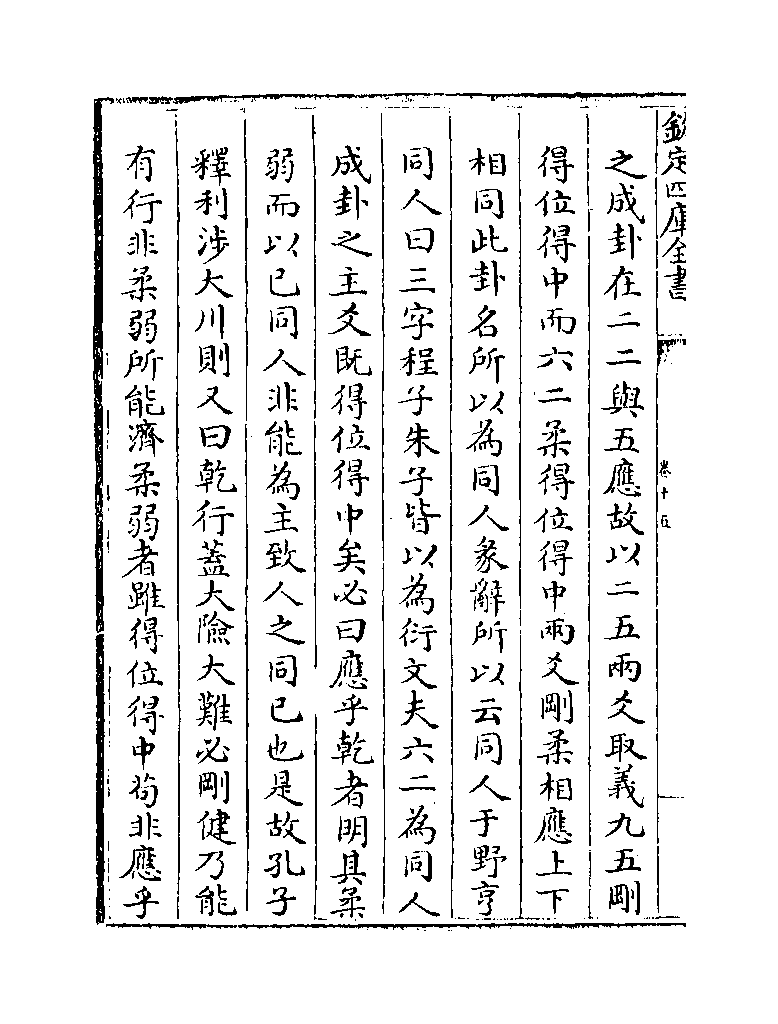 欽定四庫全書
卷十五
之成卦在二二與五應故以二五兩爻取義九五剛
得位得中而六二柔得位得中兩爻剛柔相應上下
相同此卦名所以為同人彖辭所以云同人于野亨
同人曰三字程子朱子皆以為衍文夫六二為同人
成卦之主爻既得位得中矣必曰應乎乾者明其柔
弱而以已同人非能為主致人之同已也是故孔子
釋利涉大川則又曰乾行蓋大險大難必剛健乃能
有行非柔弱所能濟柔弱者雖得位得中茍非應乎